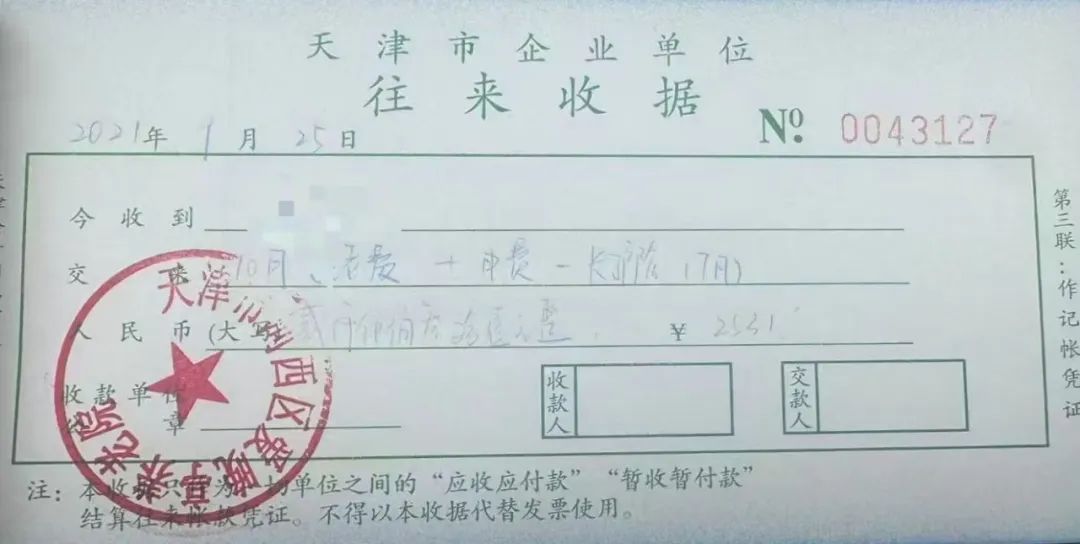 天津市企业单位
往来收据
2021年1月25日
№ 0043127
今收到
交来 10月、活费+电费-长护险(7月)
人民币(大写) ¥2531
收款单位
章
收款人
交款人
注：本收据只作为一切单位之间的“应收应付款”“暂收暂付款”
结算往来帐款凭证。不得以本收据代替发票使用。
第三联：作记帐凭证
天津 西区 养老院